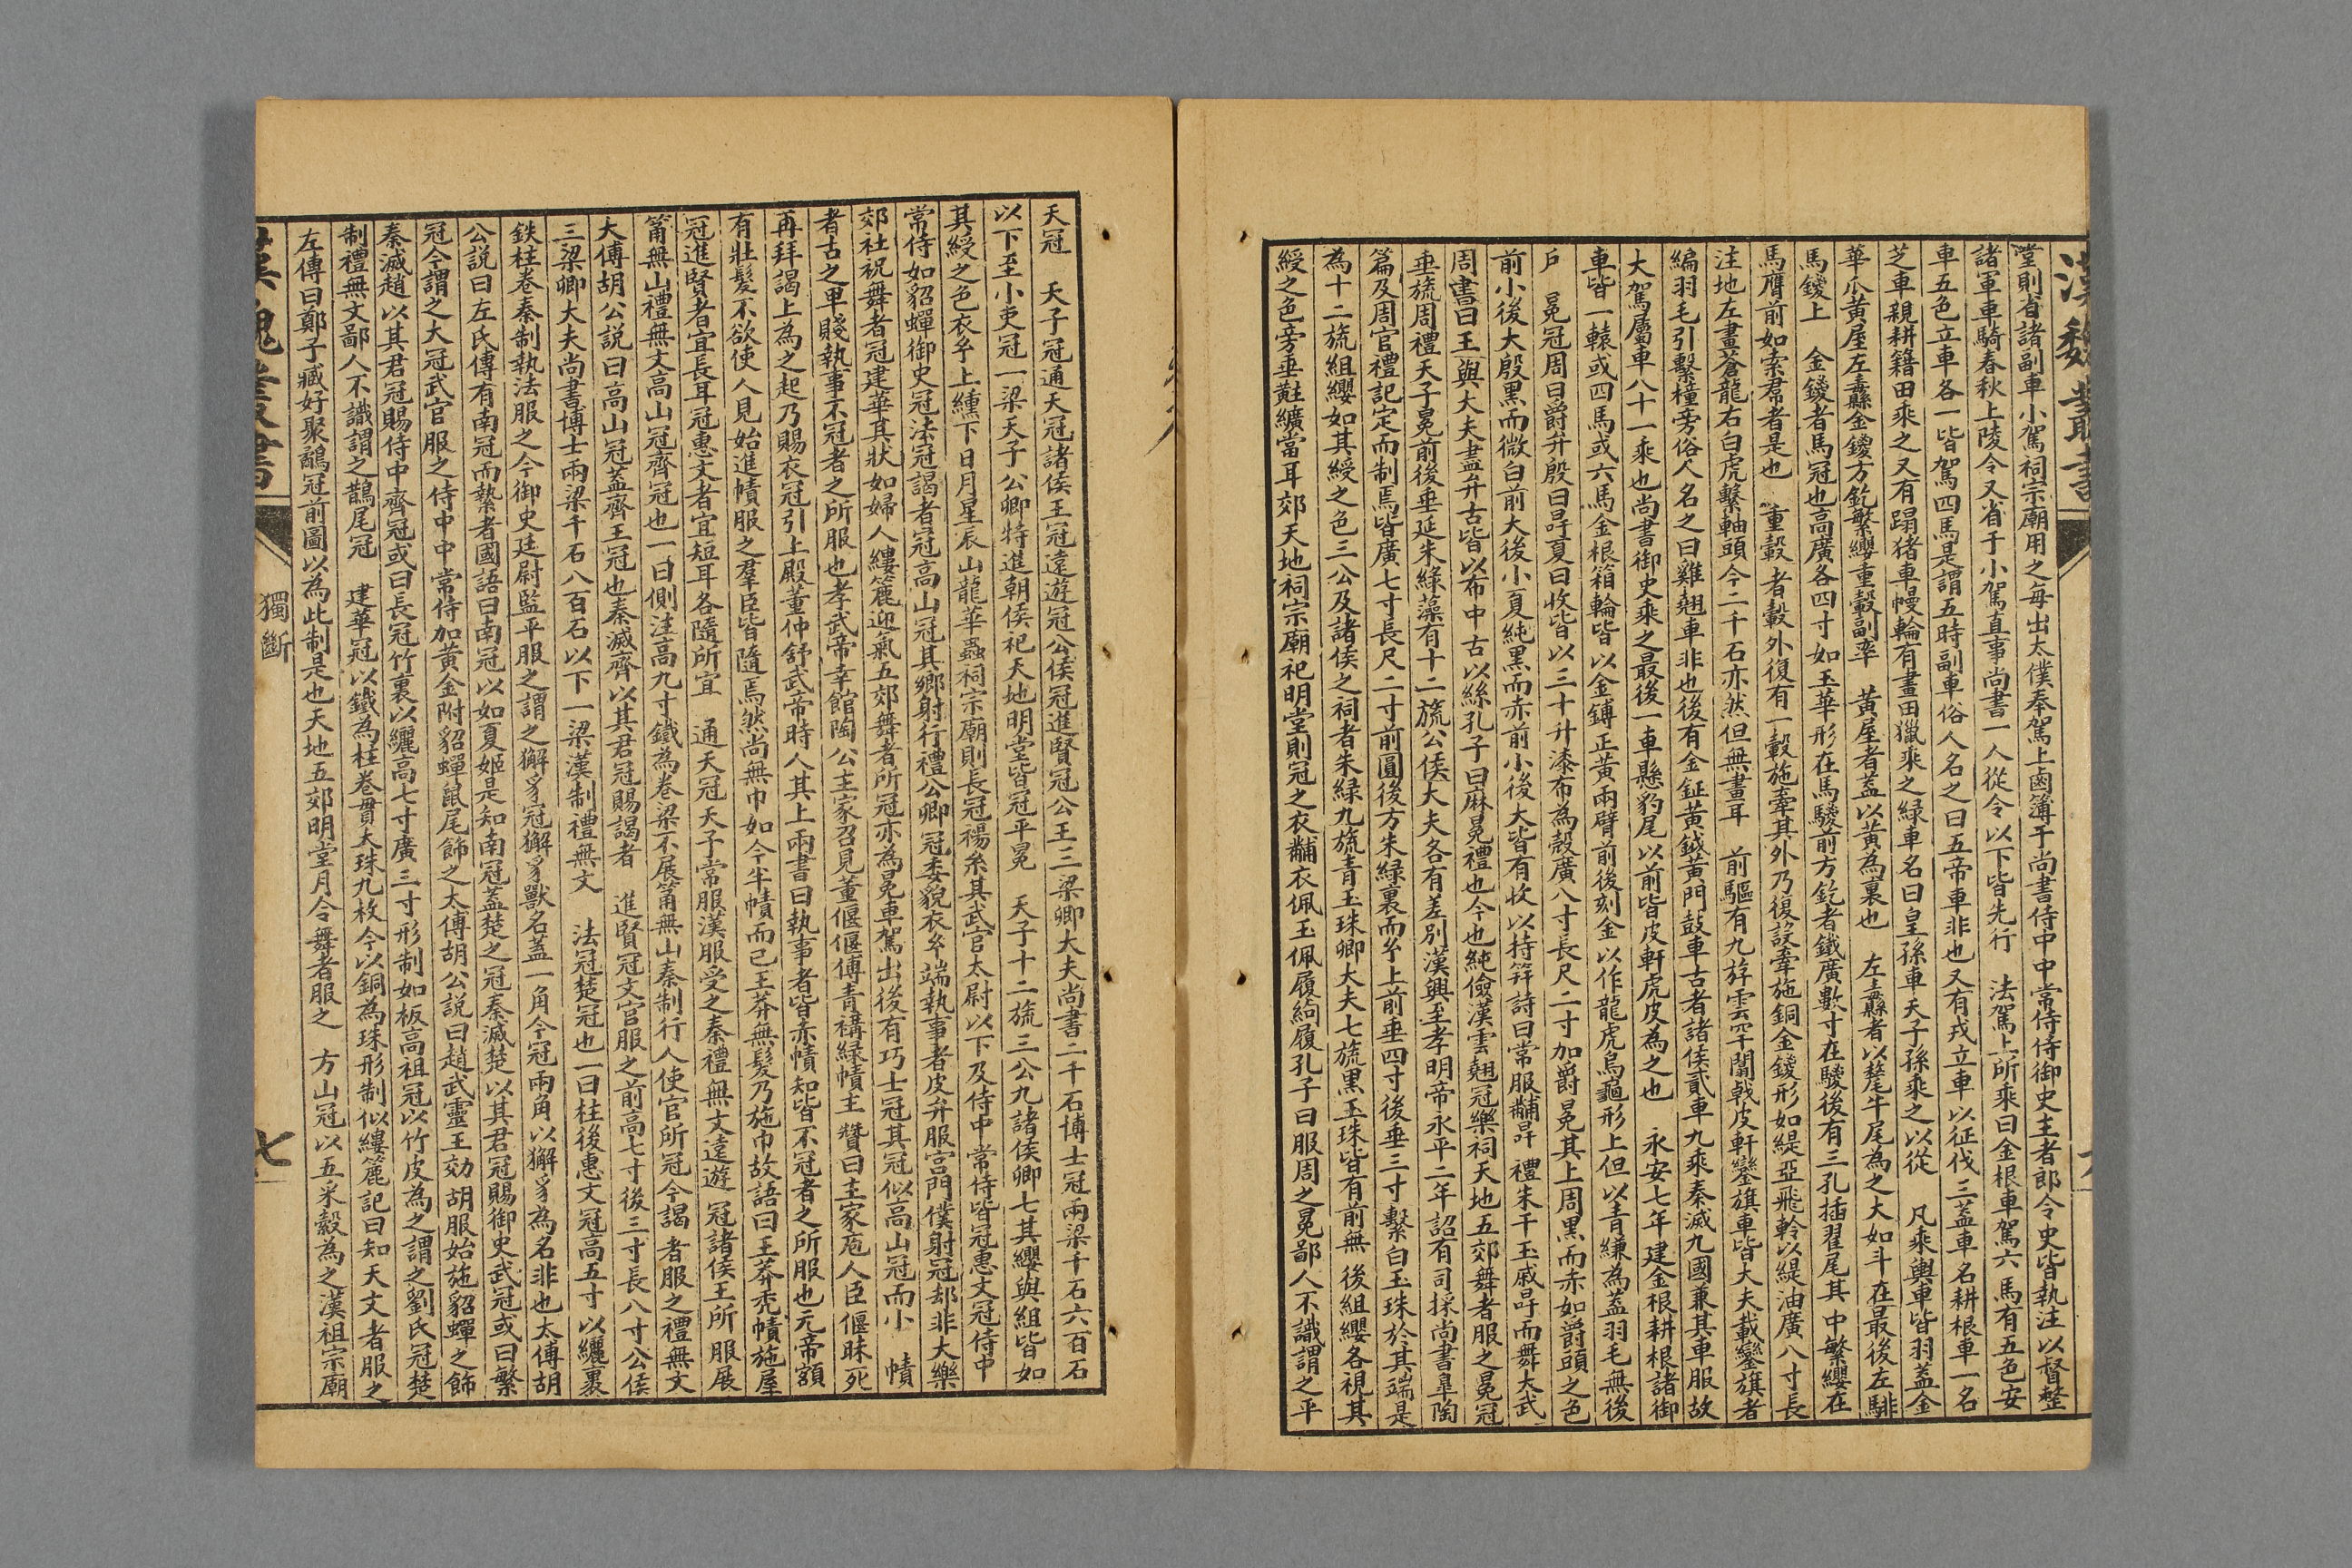 漢魏叢書
堂則省諸副車小駕祠宗廟用之每出太僕奉駕上鹵簿于尚書侍中中常侍侍御史主者郎令史皆執注以督整
諸軍車騎春秋上陵令又省于小駕直事尚書一人從令以下皆先行　法駕上所乘曰金根車駕六馬有五色安
車五色立車各一皆駕四馬是謂五時副車俗人名之曰五帝車非也又有戎立車以征伐三蓋車名耕根車一名
芝車親耕籍田乘之又有蹋猪車幔輪有畫田獵乘之緑車名曰皇孫車天子孫乘之以從　凡乘輿車皆羽蓋金
華爪黃屋左纛金鑁方釳繁纓重轂副牽　黃屋者蓋以黃為裏也　左纛者以氂牛尾為之大如斗在最後左騑
馬鑁上　金鑁者馬冠也高廣各四寸如玉華形在馬騣前方釳者鐵廣數寸在騣後有三孔插翟尾其中繁纓在
馬膺前如索帬者是也　重轂者轂外復有一轂施舝其外乃復設舝施銅金鑁形如緹亞飛軨以緹油廣八寸長
注地左畫蒼龍右白虎繫軸頭今二千石亦然但無畫耳　前驅有九斿雲罕闟戟皮軒鑾旗車皆大夫載鑾旗者
編羽毛引繫橦旁俗人名之曰雞翹車非也後有金鉦黃鉞黃門鼓車古者諸侯貳車九乘秦滅九國兼其車服故
大駕屬車八十一乘也尚書御史乘之最後一車懸豹尾以前皆皮軒虎皮為之也　永安七年建金根耕根諸御
車皆一轅或四馬或六馬金根箱輪皆以金鎛正黃兩臂前後刻金以作龍虎鳥龜形上但以青縑為蓋羽毛無後
戶　冕冠周曰爵弁殷曰冔夏曰收皆以三十升漆布為殼廣八寸長尺二寸加爵冕其上周黑而赤如爵頭之色
前小後大殷黑而微白前大後小夏純黑而赤前小後大皆有收以持笄詩曰常服黼冔　禮朱干玉戚冔而舞大武
周書曰王與大夫盡弁古皆以布中古以絲孔子曰麻冕禮也今也純儉漢雲翹冠樂祠天地五郊舞者服之冕冠
垂旒周禮天子冕前後垂延朱綠藻有十二旒公侯大夫各有差別漢興至孝明帝永平二年詔有司採尚書皐陶
篇及周官禮記定而制焉皆廣七寸長尺二寸前圓後方朱緑裏而玄上前垂四寸後垂三寸繫白玉珠於其端是
為十二旒組纓如其綬之色三公及諸侯之祠者朱緑九旒青玉珠卿大夫七旒黑玉珠皆有前無後組纓各視其
綬之色旁垂黈纊當耳郊天地祠宗廟祀明堂則冠之衣黼衣佩玉佩履絇履孔子曰服周之冕鄙人不識謂之平
天冠　天子冠通天冠諸侯王冠遠遊冠公侯冠進賢冠公王三梁卿大夫尚書二千石博士冠兩梁千石六百石
以下至小吏冠一梁天子公卿特進朝侯祀天地明堂皆冠平冕　天子十二旒三公九諸侯卿七其纓與組皆如
其綬之色衣玄上纁下日月星辰山龍華蟲祠宗廟則長冠䄡玄其武官太尉以下及侍中常侍皆冠惠文冠侍中
常侍如貂蟬御史冠法冠謁者冠高山冠其鄉射行禮公卿冠委貌衣玄端執事者皮弁服宮門僕射冠却非大樂
郊社祝舞者冠建華其狀如婦人縷簏迎氣五郊舞者所冠亦為冕車駕出後有巧士冠其冠似高山冠而小　幘
者古之卑賤執事不冠者之所服也孝武帝幸館陶公主家召見董偃偃傅青褠緑幘主贊曰主家庖人臣偃昧死
再拜謁上為之起乃賜衣冠引上殿董仲舒武帝時人其上兩書曰執事者皆赤幘知皆不冠者之所服也元帝額
有壯髮不欲使人見始進幘服之羣臣皆隨焉然尚無巾如今半幘而已王莽無髮乃施巾故語曰王莽秃幘施屋
冠進賢者宜長耳冠惠文者宜短耳各隨所宜　通天冠天子常服漢服受之秦禮無文遠遊冠諸侯王所服展
筩無山禮無文高山冠齊冠也一曰側注高九寸鐵為卷梁不展筩無山秦制行人使官所冠今謁者服之禮無文
大傅胡公説曰高山冠蓋齊王冠也秦滅齊以其君冠賜謁者　進賢冠文官服之前高七寸後三寸長八寸公侯
三梁卿大夫尚書博士兩梁千石八百石以下一梁漢制禮無文　法冠楚冠也一曰柱後惠文冠高五寸以纚裹
鉄柱卷秦制執法服之今御史廷尉監平服之謂之獬豸冠獬豸獸名蓋一角今冠兩角以獬豸為名非也太傅胡
公説曰左氏傳有南冠而縶者國語曰南冠以如夏姬是知南冠蓋楚之冠秦滅楚以其君冠賜御史武冠或曰繁
冠今謂之大冠武官服之侍中中常侍加黃金附貂蟬鼠尾飾之太傅胡公説曰趙武靈王効胡服始施貂蟬之飾
秦滅趙以其君冠賜侍中齊冠或曰長冠竹裏以纚高七寸廣三寸形制如板高祖冠以竹皮為之謂之劉氏冠楚
制禮無文鄙人不識謂之鵲尾冠　建華冠以鐵為柱卷貫大珠九枚今以銅為珠形制似縷簏記曰知天文者服之
左傳曰鄭子臧好聚鷸冠前圖以為此制是也天地五郊明堂月令舞者服之　方山冠以五采縠為之漢祖宗廟
漢魏叢書　獨斷　七